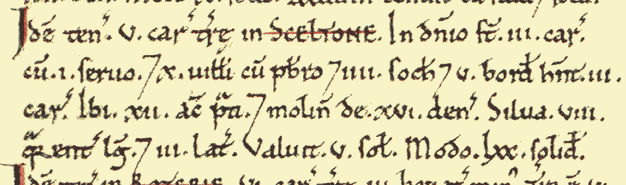 Idē ten̄. v. car̄ træ in SCELTONE. In dn̄io st̄. iii. car̄.
cū. i. seruo. 7 x. uilli cū pb̄ro 7 iiii. soch̄ 7 v. bord̄ hn̄t. iii.
car̄. Ibi. xii. ac̄ p̃ti. 7 molin̄ de. xvi. den̄. Silua. viii.
qⁱ̃rent̄ lḡ. 7 iii. lat̄. Valuit. v. sol̄. Modo. lxx. solid̄.